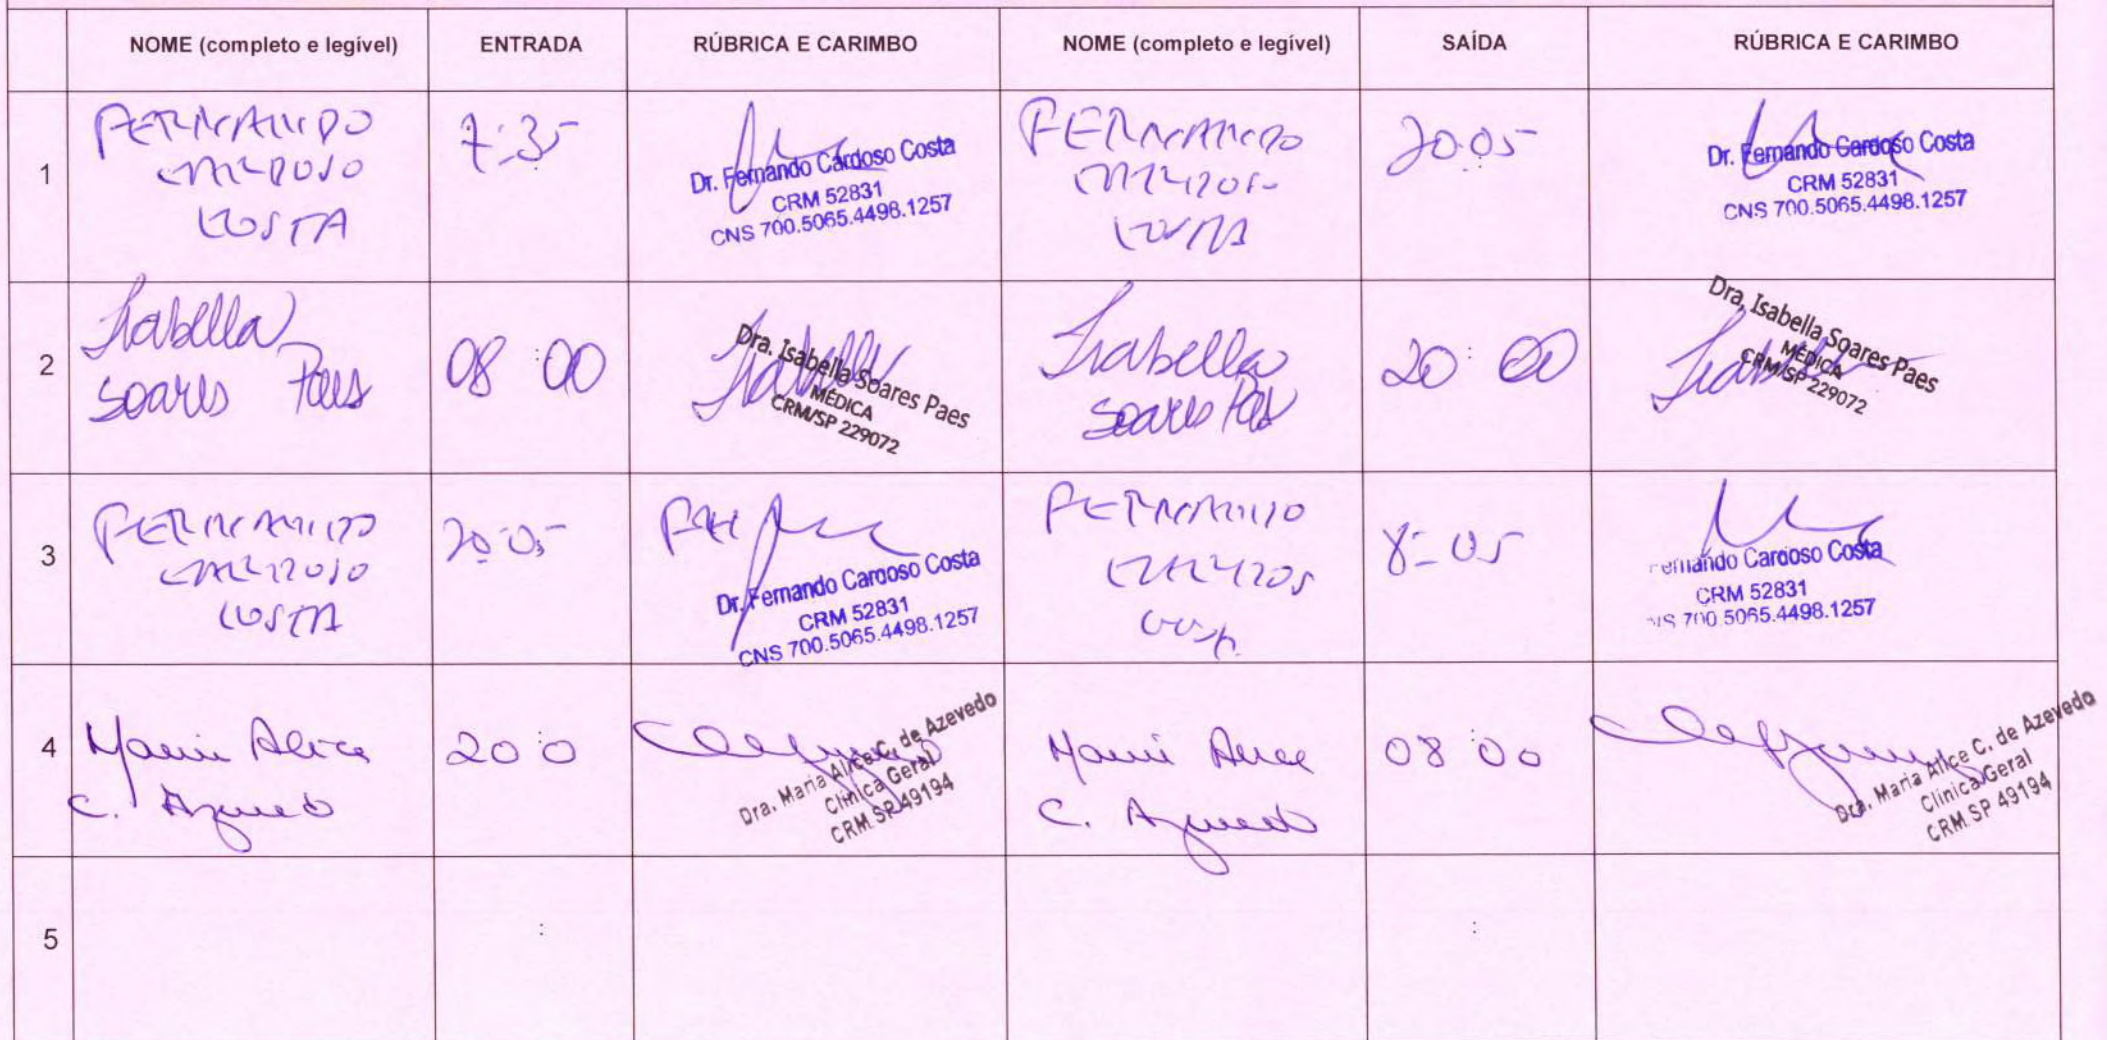 NOME (completo e legível) ENTRADA RÚBRICA E CARIMBO NOME (completo e legível) SAÍDA RÚBRICA E CARIMBO
1
FERNANDO
CARDOSO
COSTA
7:35
Dr. Fernando Cardoso Costa
CRM 52831
CNS 700.5065.4498.1257
FERNANDO
CARDOSO
COSTA
20:05
Dr. Fernando Cardoso Costa
CRM 52831
CNS 700.5065.4498.1257
2
Isabella
Soares Paes
08:00
Dra. Isabella Soares Paes
MÉDICA
CRM/SP 229072
Isabella
Soares Paes
20:00
Dra. Isabella Soares Paes
MÉDICA
CRM/SP 229072
3
FERNANDO
CARDOSO
COSTA
20:05
Dr. Fernando Cardoso Costa
CRM 52831
CNS 700.5065.4498.1257
FERNANDO
CARDOSO
8:05
Fernando Cardoso Costa
CRM 52831
CNS 700.5065.4498.1257
4
Maria Alice
C. Azevedo
20:0
Dra. Maria Alice C. de Azevedo
Clínica Geral
CRM SP 49194
Maria Alice
C. Azevedo
08:00
Dra. Maria Alice C. de Azevedo
Clínica Geral
CRM SP 49194
5
: :